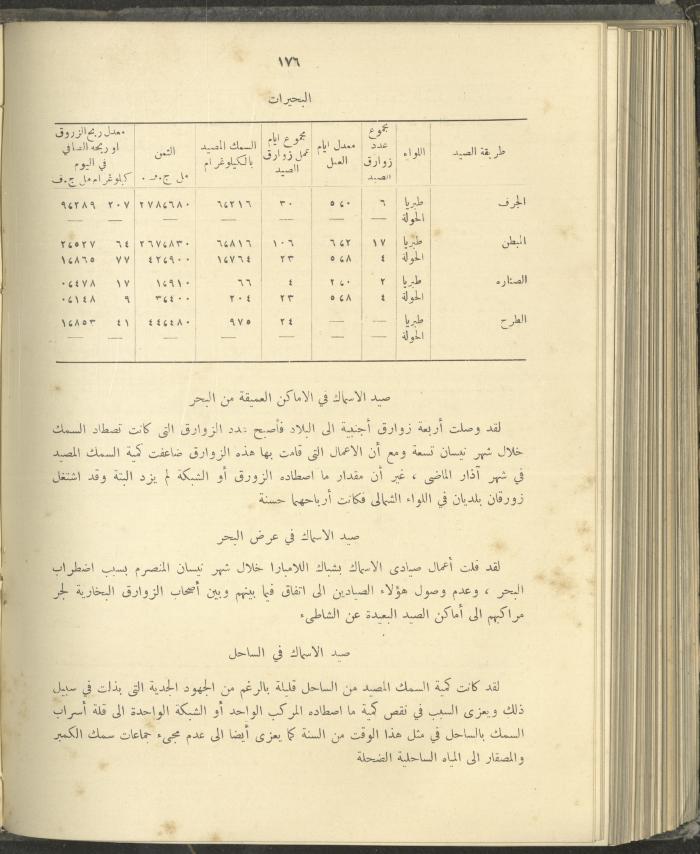 ١٧٦
البحيرات
طريقة الصيد اللواء مجموع عدد زوارق الصيد معدل ايام العمل مجموع ايام عمل زوارق الصيد السمك المصيد بالكيلوغرام الثمن مل ج.ف. معدل ربح الزروق او ربحه الصافي في اليوم كيلوغرام مل ج.ف
الجرف طبريا ٦ ٥،٠ ٣٠ ٦،٢١٦ ٢٧٨،٦٨٠ ٢٠٧ ٩،٢٨٩
الحولة — — — — — — —
المبطن طبريا ١٧ ٦،٢ ١٠٦ ٦،٨١٦ ٢٦٧،٨٣٠ ٦٤ ٢،٥٢٧
الحولة ٤ ٥،٨ ٢٣ ١،٧٦٤ ٤٢،٩٠٠ ٧٧ ١،٨٦٥
الصناره طبريا ٢ ٢،٠ ٤ ٦٦ ١،٩١٠ ١٧ ٠،٤٧٨
الحولة ٤ ٥،٨ ٢٣ ٢٠٤ ٣،٤٠٠ ٩ ٠،١٤٨
الطرح طبريا — — ٢٤ ٩٧٥ ٤٤،٤٨٠ ٤١ ١،٨٥٣
الحولة — — — — — — —
صيد الاسماك في الاماكن العميقة من البحر
لقد وصلت أربعة زوارق أجنبية الى البلاد فأصبح عدد الزوارق التى كانت تصطاد السمك
خلال شهر نيسان تسعة ومع أن الاعمال التى قامت بها هذه الزوارق ضاعفت كمية السمك المصيد
في شهر آذار الماضى ، غير أن مقدار ما اصطاده الزورق أو الشبكة لم يزد البتة وقد اشتغل
زورقان بلديان في اللواء الشمالى فكانت أرباحهما حسنة
صيد الاسماك في عرض البحر
لقد قلت أعمال صيادى الاسماك بشباك اللامبارا خلال شهر نيسان المنصرم بسبب اضطراب
البحر ، وعدم وصول هؤلاء الصيادين الى اتفاق فيما بينهم وبين أصحاب الزوارق البخارية لجر
مراكبهم الى أماكن الصيد البعيدة عن الشاطىء
صيد الاسماك في الساحل
لقد كانت كمية السمك المصيد من الساحل قليلة بالرغم من الجهود الجدية التى بذلت في سبيل
ذلك ويعزى السبب في نقص كمية ما اصطاده المركب الواحد أو الشبكة الواحدة الى قلة أسراب
السمك بالساحل في مثل هذا الوقت من السنة كما يعزى أيضا الى عدم مجىء جماعات سمك الكمبر
والمصقار الى المياه الساحلية الضحلة